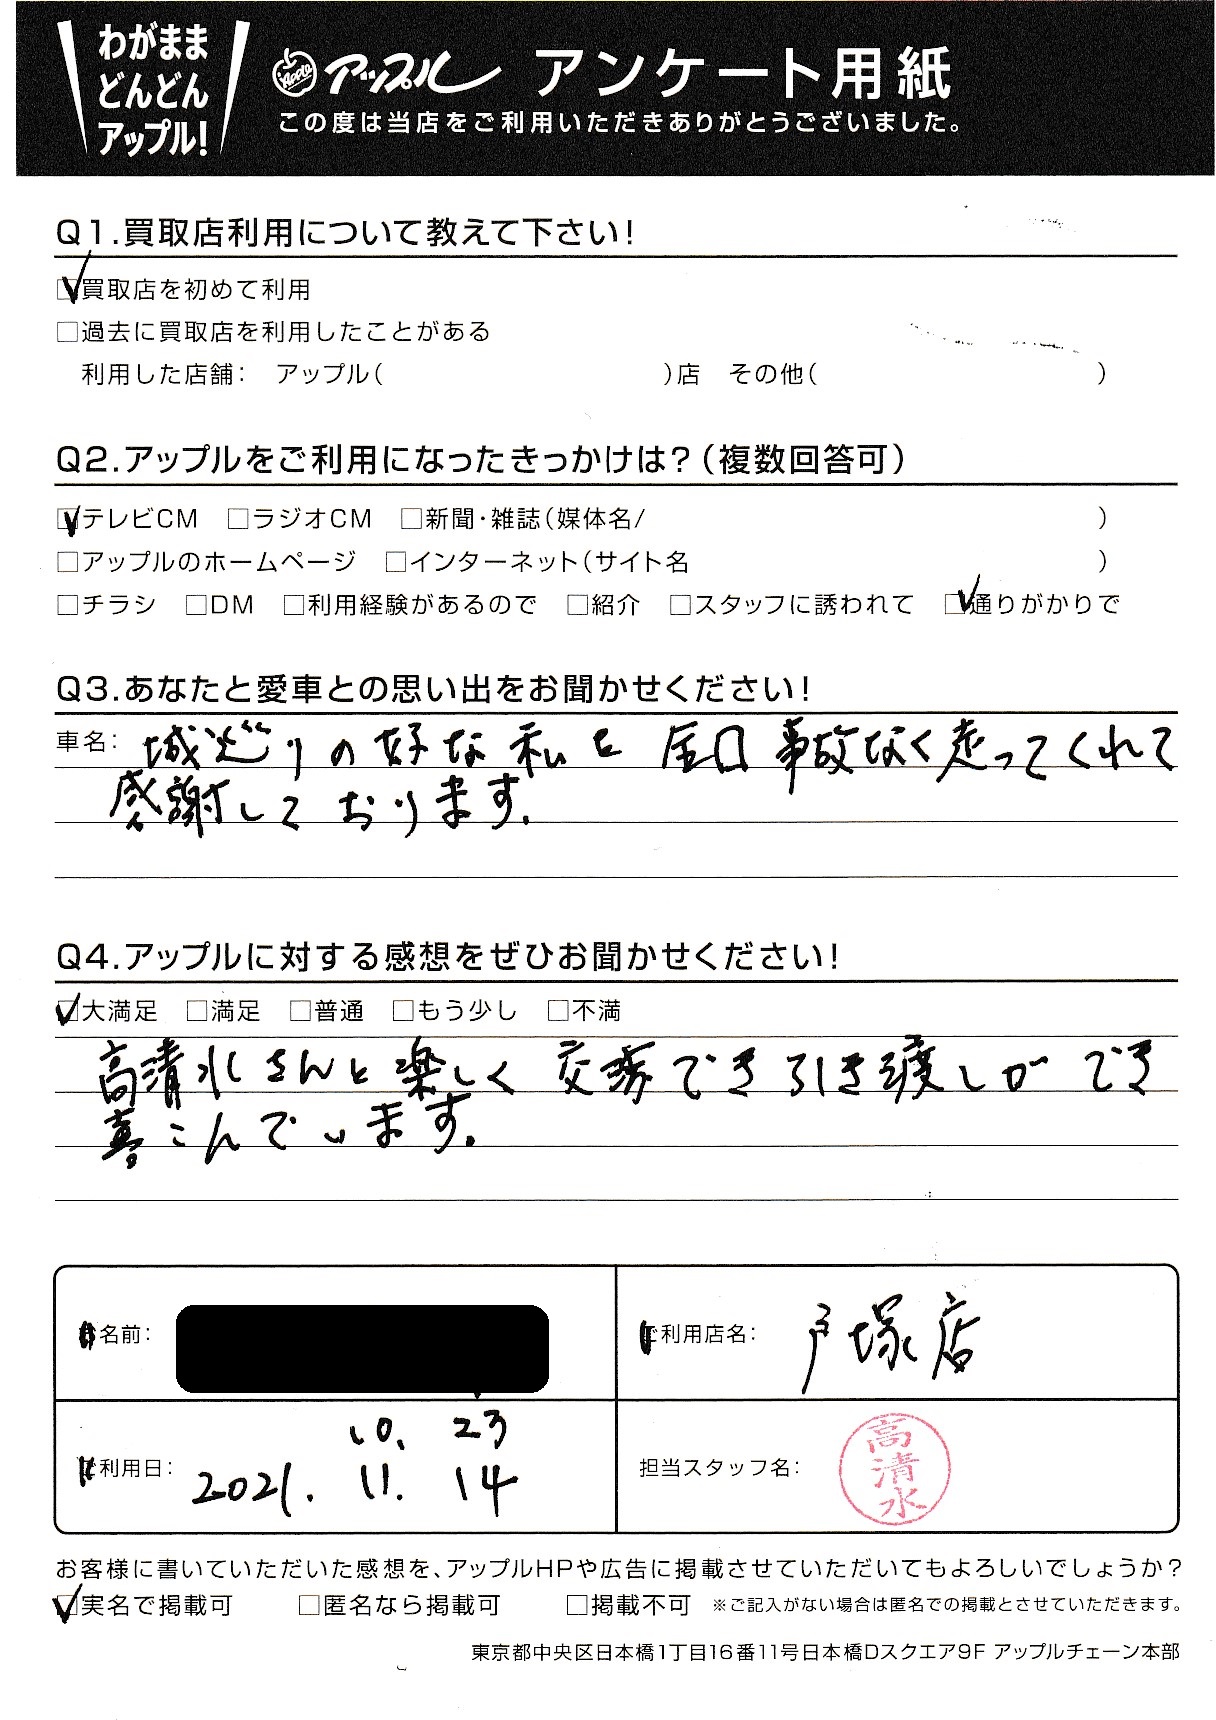 わがまま
どんどん
アップル!
Apple アップル アンケート用紙
この度は当店をご利用いただきありがとうございました。
Q1.買取店利用について教えて下さい!
☑買取店を初めて利用
□過去に買取店を利用したことがある
利用した店舗: アップル( )店 その他( )
Q2.アップルをご利用になったきっかけは?(複数回答可)
☑テレビCM □ラジオCM □新聞・雑誌(媒体名/ )
□アップルのホームページ □インターネット(サイト名 )
□チラシ □DM □利用経験があるので □紹介 □スタッフに誘われて ☑通りがかりで
Q3.あなたと愛車との思い出をお聞かせください!
車名: 城巡りの好な私を 全口 事故なく走ってくれて
感謝しております。
Q4.アップルに対する感想をぜひお聞かせください!
☑大満足 □満足 □普通 □もう少し □不満
高清水さんと楽しく 交渉でき引き渡しができ
喜こんでいます。
名前:
利用店名: 戸塚店
10. 23
利用日: 2021. 11. 14
担当スタッフ名: 高清水
お客様に書いていただいた感想を、アップルHPや広告に掲載させていただいてもよろしいでしょうか?
☑実名で掲載可 □匿名なら掲載可 □掲載不可 ※ご記入がない場合は匿名での掲載とさせていただきます。
東京都中央区日本橋1丁目16番11号日本橋Dスクエア9F アップルチェーン本部